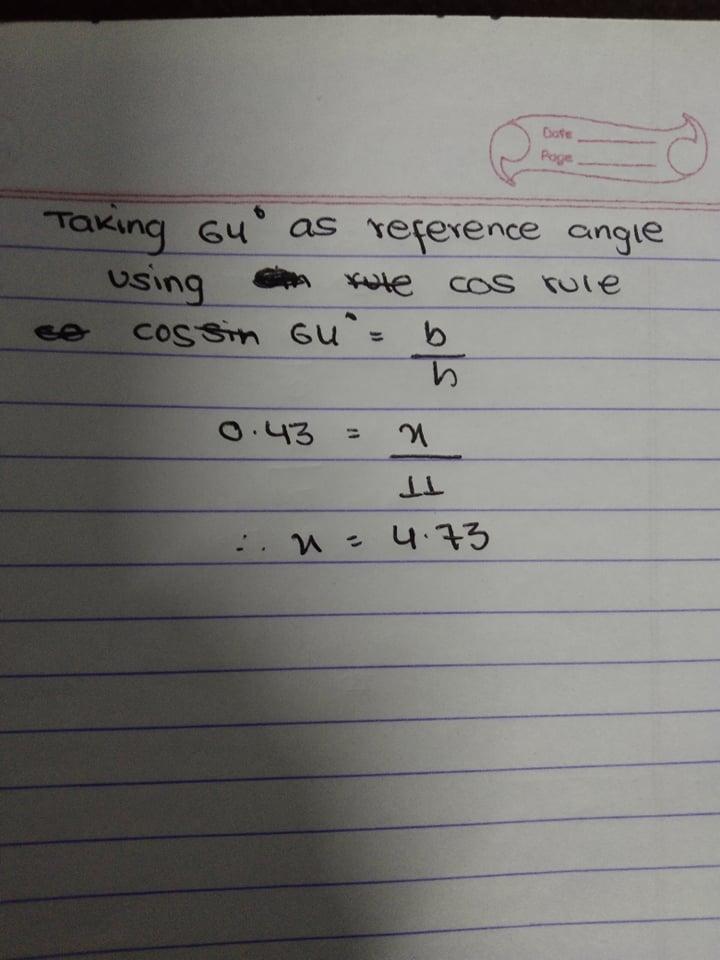 Date
Page
Taking 64° as reference angle
using rule cos rule
cos sin 64° = b
h
0.43 = x
11
∴ x = 4.73